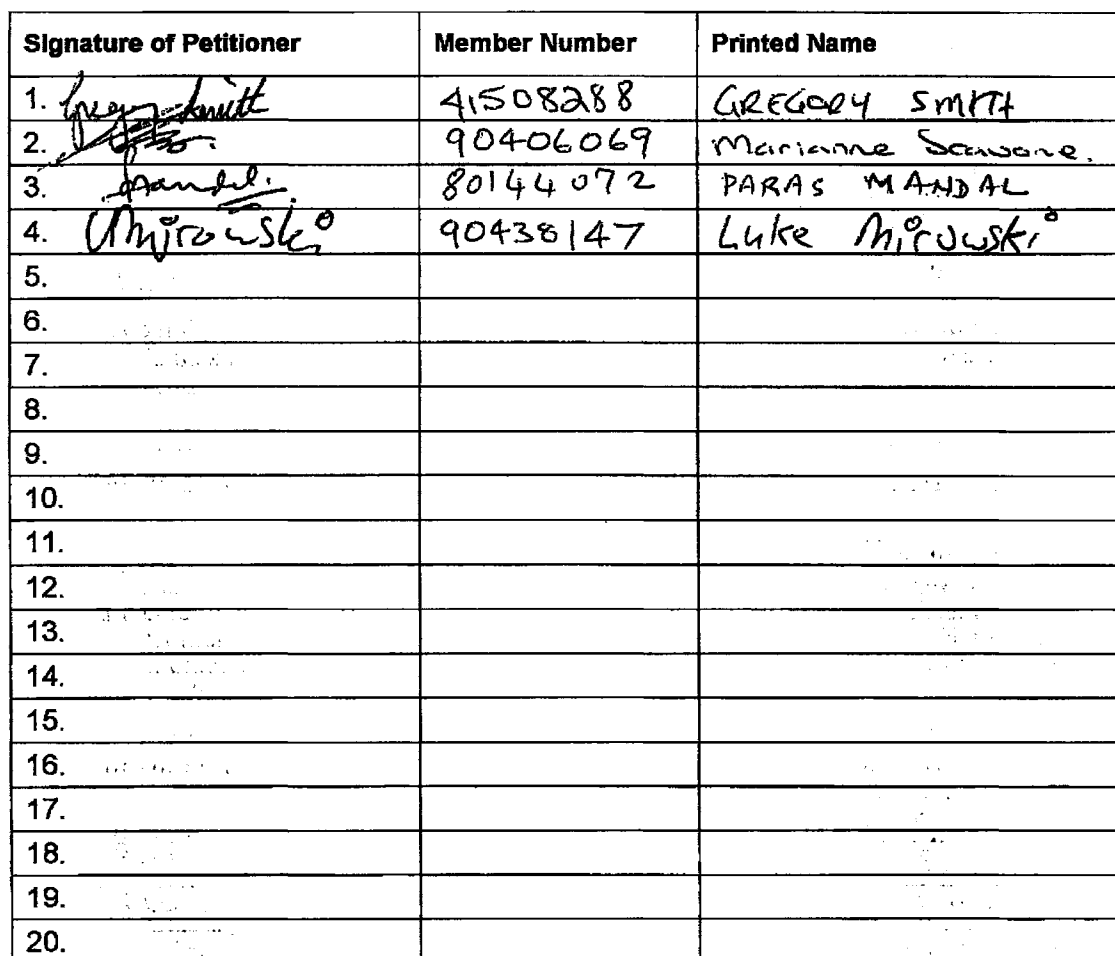 Signature of Petitioner Member Number Printed Name
1. Gregory Smith 41508288 GREGORY SMITH
2. 90406069 Marianne
3. Mandal. 80144072 PARAS MANDAL
4. LMirowski 90438147 Luke Mirowski
5.
6.
7.
8.
9.
10.
11.
12.
13.
14.
15.
16.
17.
18.
19.
20.